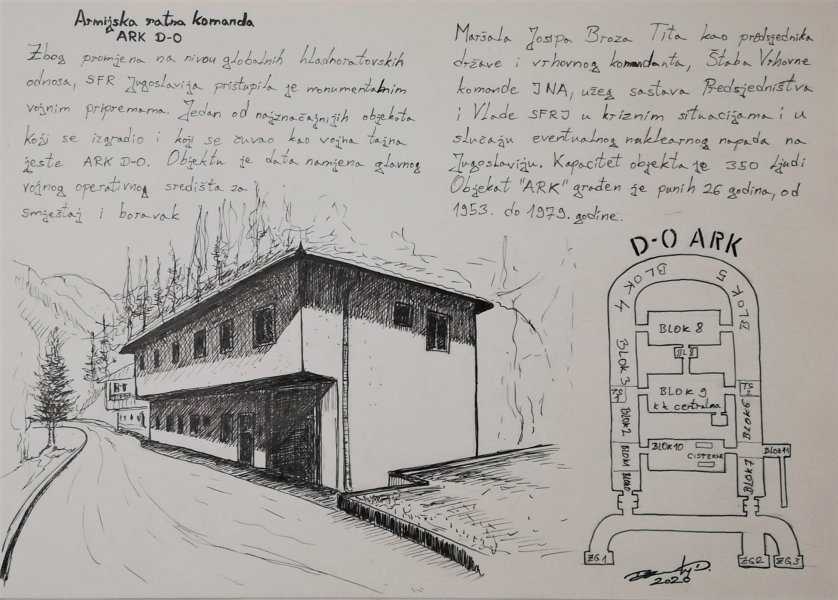 Armijska ratna komanda
ARK D-O
Zbog promjena na nivou globalnih hladnoratovskih
odnosa, SFR Jugoslavija pristupila je monumentalnim
vojnim pripremama. Jedan od najznačajnijih objekata
koji se izgradio i koji se čuvao kao vojna tajna
jeste ARK D-O. Objektu je data namjena glavnog
vojnog operativnog središta za
smještaj i boravak
Maršala Josipa Broza Tita kao predsjednika
države i vrhovnog komandanta, Štaba Vrhovne
komande JNA, užeg sastava Predsjedništva
i Vlade SFRJ u kriznim situacijama i u
slučaju eventualnog nuklearnog napada na
Jugoslaviju. Kapacitet objekta je 350 ljudi
Objekat "ARK" građen je punih 26 godina, od
1953. do 1979. godine.
D-O ARK
BLOK 4
BLOK 5
BLOK 8
BL 8
BLOK 3
BLOK 9
k k centralna
BLOK 6
BLOK 2
BLOK 10
CISTERNE
BLOK 11
BLOK 1
BLOK 7
ZG1
ZG2
ZG3
2020